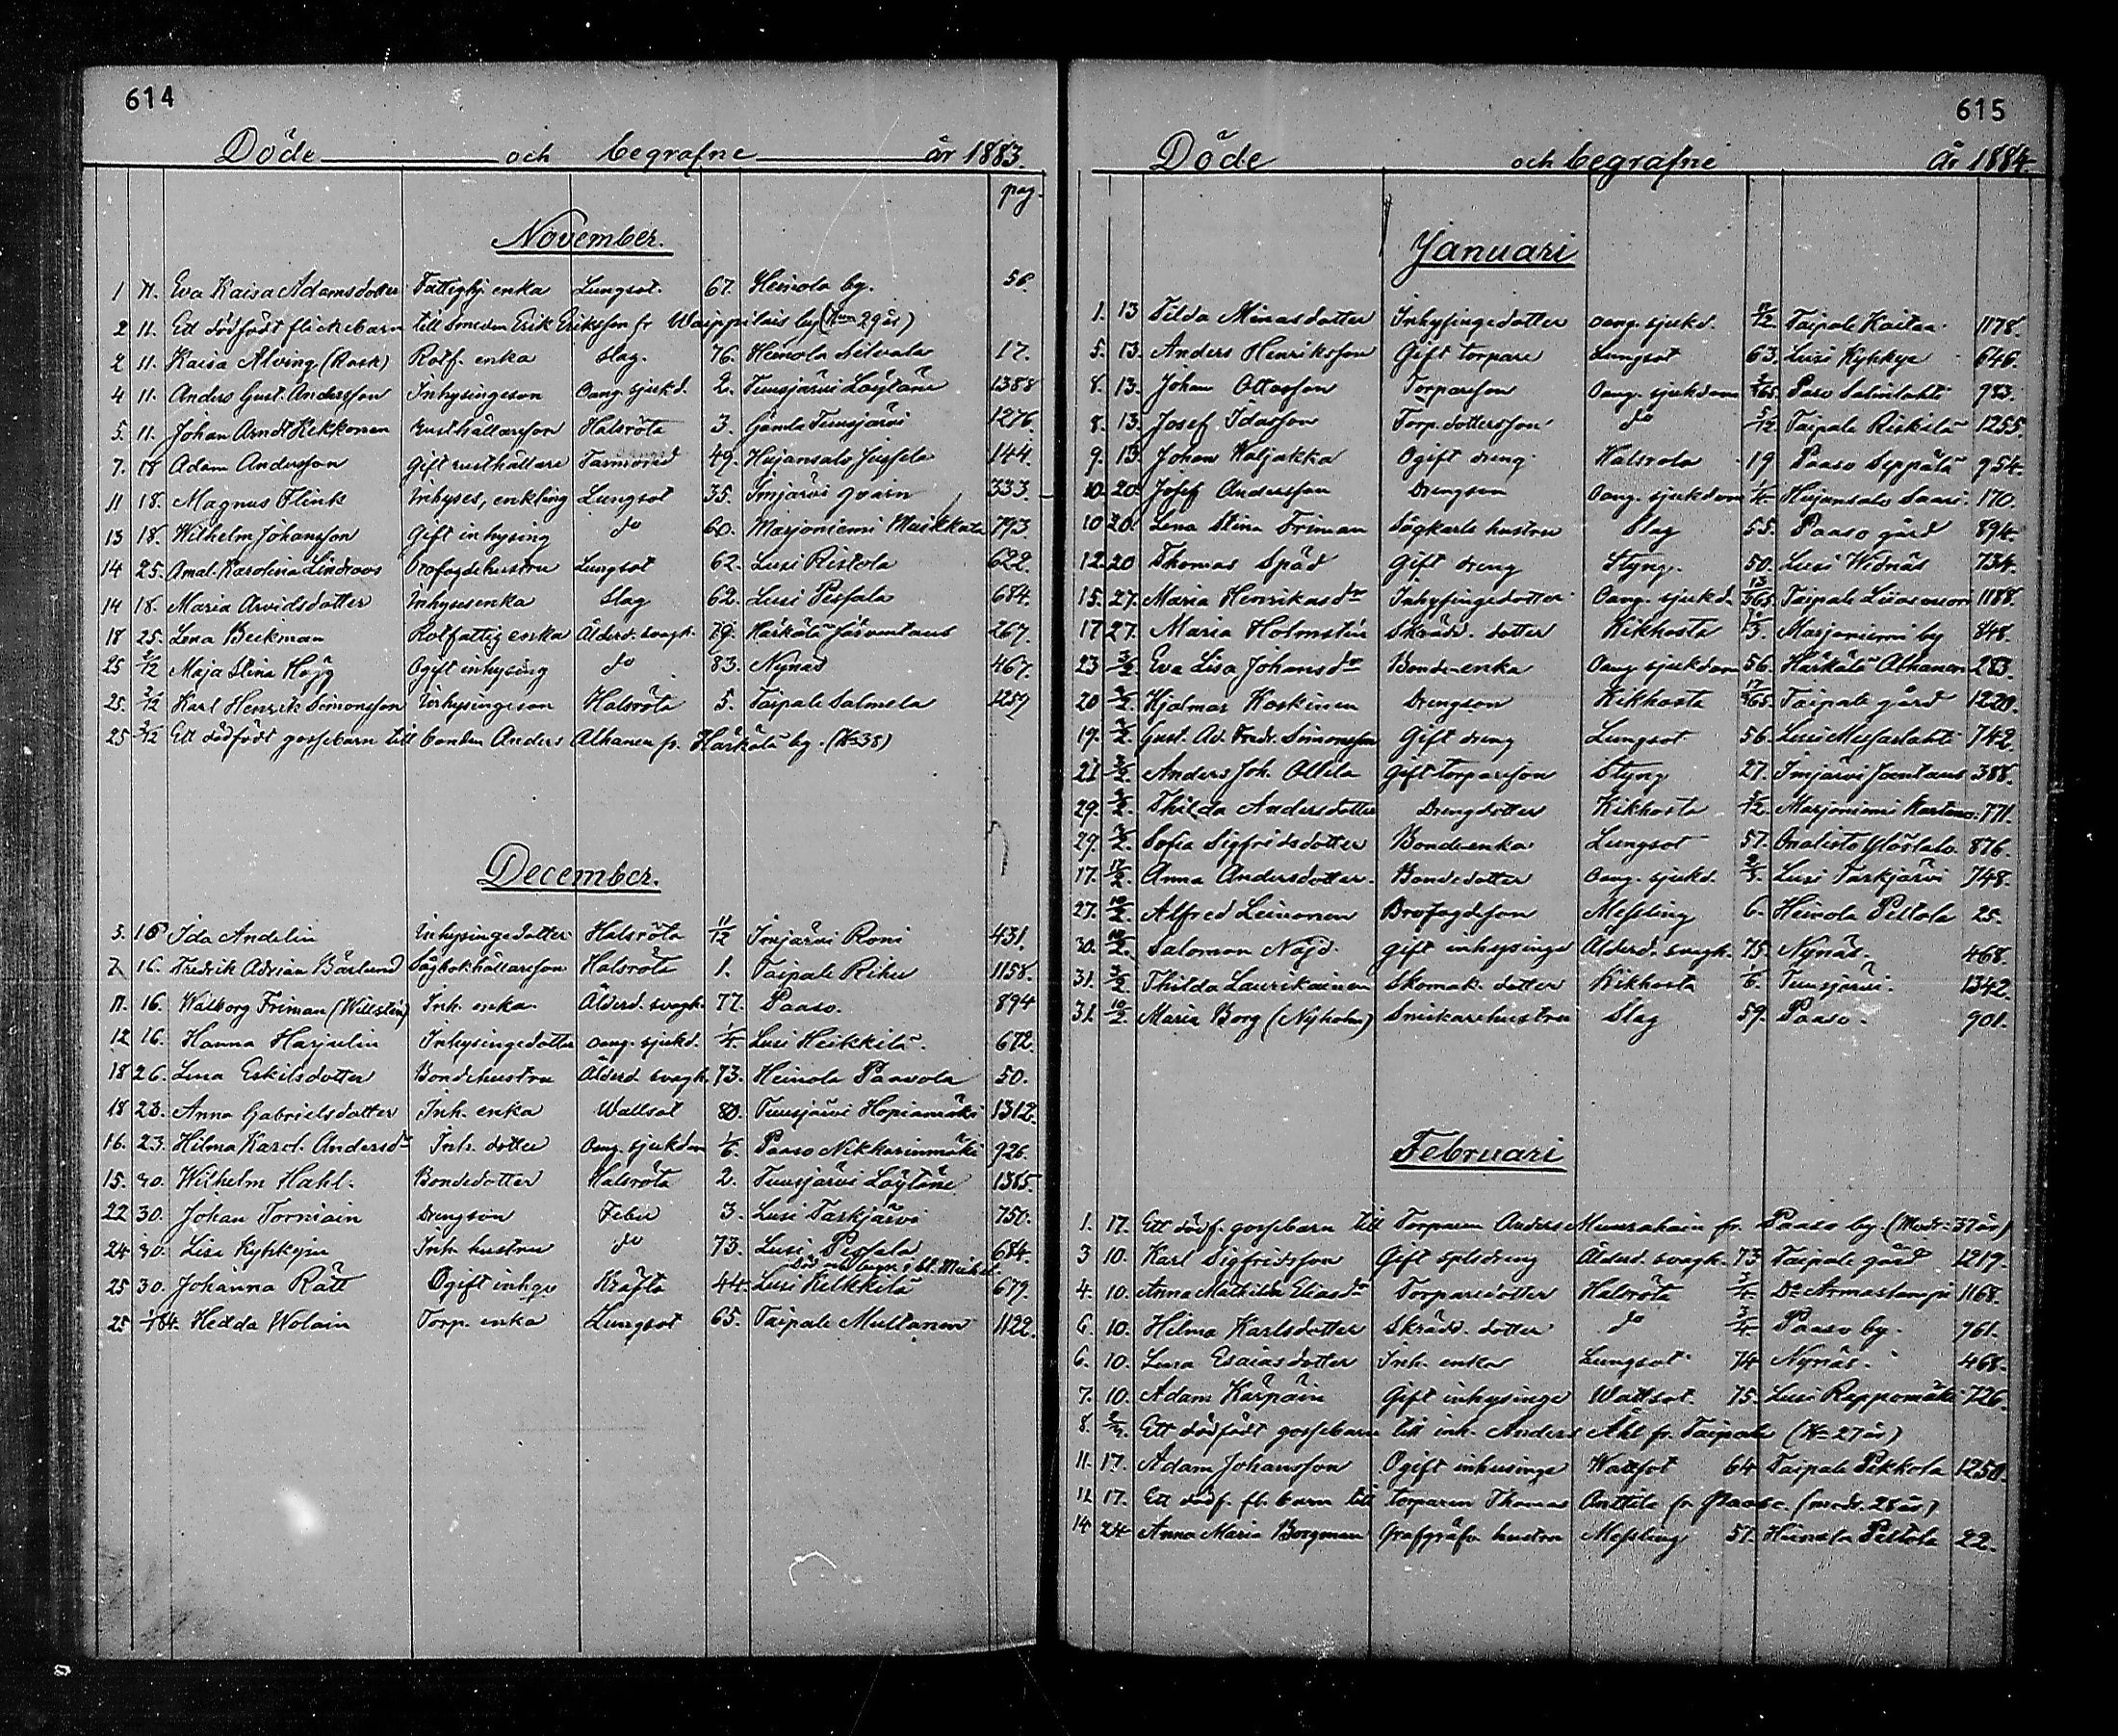 614
Döde och begrafne år 1883.
pag.
November.
1 11. Eva Kaisa Adamsdotter Fattighj. enka Lungsot. 67. Heinola by. 56.
2 11. Ett dödfödt flickebarn till Smeden Erik Eriksson fr (29 år)
2 11. Kaisa Alving (Rask) Rotf. enka Slag. 76. Heinola Silvala 17.
4 11. Anders Gust. Andersson Inhysingeson Oang. sjukd. 2. Tuusjärvi Läytäne 1388
5. 11. Johan Arndt Kekkonen Rusthållarson Halsröta 3. Gamla Tuusjärvi 1276.
7. 11 Adam Andersson Gift rusthållare 49. Hujansalo Jussela 144.
11 18. Magnus Flink Inhyses, enkling Lungsot 35. Imjärvi qvarn 333.
13 18. Wilhelm Johansson Gift inhysing do 60. Marjoniemi Musikkala 793.
14 25. Amal. Karolina Lindroos Brofogdehustru Lungsot 62. Lusi Ristola 622.
14 18. Maria Arvidsdotter Inhysesenka Slag 62. Lusi Pessala 684.
18 25. Lena Beckman Rotfattig enka Ålderd. svagh. 79. Härkälä 267.
25 2/12 Maja Stina Höjg Ogift inhysing do 83. Nynäs 467.
25. 2/12 Karl Henrik Simonsson Inhysingeson Halsröta 5. Taipale Salmela 1257
25 2/12 Ett dödfödt gossebarn till bonden Anders Alhanen fr. Härkälä by. (H=38)
December.
3. 16 Ida Andelin Inhysingedotter Halsröta 11/12 Imjärvi Roni 431.
7. 16. Fredrik Adrian Bärlund Halsröta 1. Taipale Rihu 1158.
11. 16. Walborg Friman (Willstén) Inh. enka Ålderd. svagh. 77. Paaso. 894
12 16. Hanna Harjulin Inhysingedotter oang. sjukd. 1/4. Lusi Heikkilä. 672.
18 26. Lena Eskilsdotter Bondehustru Ålderd. svagh. 73. Heinola Paavola 50.
18 23. Anna Gabrielsdotter Inh. enka Wattsot 80. Tuusjärvi Hopiamäki 1312.
16. 23. Hilma Karol. Andersdr Inh. dotter Oang. sjukdom 1/6. Paaso Nikkarinmäki 926.
15. 30. Wilhelm Hahl. Bondedotter Halsröta 2. Tuusjärvi Läytäne 1385.
22 30. Johan Torniain Drengson Feber 3. Lusi Taskjärvi 750.
24 30. Lisa Kyhkyin Inh. hustru do 73. Lusi Pessala 684.
25 30. Johanna Rätt Ogift inhge Kräfta 44. Lusi Heikkilä 679.
25 1/1 84. Hedda Wolain Torp. enka Lungsot 65. Taipale Multanen 1122.
615
Döde och begrafne år 1884.
Januari
1. 13 Tilda Minasdotter Inhysingedotter oang. sjukd. Taipale Kaitaa 1178.
5. 13. Anders Henriksson Gift torpare Lungsot 63. Lusi Kyhkye 646.
8. 13. Johan Ottosson Torpareson Oang. sjukdom Paaso Salmilahti 983.
8. 13. Josef Idasson Torp. dottersson do 5/12 Taipale Riskilä 1255.
9. 13 Johan Haljakka Ogift dreng Halsröta 19 Paaso Seppälä 954.
10. 20. Josef Andersson Drengson Oang. sjukdom 1/4. Hujansalo Saari. 170.
10 20. Lena Stina Friman Sågkarls hustru Slag 55. Paaso gård 894.
12. 20 Thomas Späd Gift dreng Styng. 50. Lusi Widnäs 734.
15. 27. Maria Henriksdr Inhysingedotter Oang. sjukd. 13/365. Taipale 1188.
17 27. Maria Holmstén Skrädd. dotter Kikhosta 1/3. Marjoniemi by 848.
23 3/2. Eva Lisa Johansdr Bonde-enka Oang. sjukdom 56. Härkälä Alhanen 283.
20 3/2. Hjalmar Koskinen Drengson Kikhosta 17/365. Taipale gård 1220.
19. 3/2. Gust. Ad. Fredr. Simonsson Gift dreng Lungsot 56. Lusi 742.
21 3/2. Anders Joh. Ollila Gift torpareson Styng 27. Imjärvi 388.
29. 3/2. Thilda Andersdotter Drengdotter Kikhosta Marjoniemi 771.
29. 3/2. Sofia Sigfridsdotter Bonde-enka Lungsot 57. Onalisto Ylöstalo 876.
17. Anna Andersdotter. Bondedotter Oang. sjukd. Lusi Taskjärvi 748.
27. 10/2. Alfred Leinonen Brofogdeson Messling 6. Heinola Peltola 25.
30. 10/2. Salomon Nöjd. gift inhysinge Ålderd. svagh. 75. Nynäs. 468.
31. 3/2. Thilda Laurikainen Skomak. dotter Kikhosta 1/6. Tuusjärvi. 1342.
31. 10/2. Maria Borg (Nyholm) Snickarehustru Slag 59. Paaso. 901.
Februari
1. 17. Ett dödf. gossebarn till Torparen Anders fr. Paaso by. (Modr. 37 år)
3 10. Karl Sigfridsson Gift Ålderd. svagh. 73 Taipale gård 1219.
4. 10. Anna Mathilda Eliasdr Torparedotter Halsröta 3/4. Do Armaslampi 1168.
6. 10. Hilma Karlsdotter Skrädd. dotter do 3/4. Paaso by. 961.
6. 10. Lena Esaiasdotter Inh. enka Lungsot 74 Nynäs. 468.
7. 10. Adam Kärpäin Gift inhysinge Wattsot. 75. Lusi Reppomäki 726.
8. Ett dödfödt gossebarn till inh. Anders Ahl fr. Taipale (H= 27 år)
11. 17. Adam Johansson Ogift inhusinge Wattsot 64 Taipale Pekkola 1250.
12 17. Ett dödf. fl. barn till torparen Thomas Anttila fr. Paaso. (modr. 28 år)
14 24 Anna Maria Borgman Grafgräf. hustru Messling 51. Heinola Peltola 22.